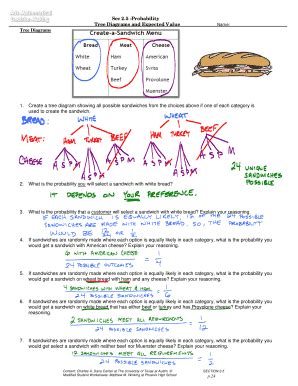 Sec 2.2 -Probability
Tree Diagrams and Expected Value Name:
Tree Diagrams
Create-a-Sandwich Menu
Bread Meat Cheese
White Ham American
Wheat Turkey Swiss
Beef Provolone
Muenster
1. Create a tree diagram showing all possible sandwiches from the choices above if one of each category is
used to create the sandwich.
BREAD: WHITE WHEAT
MEAT: HAM TURKEY BEEF HAM TURKEY BEEF
CHEESE A S P M A S P M A S P M A S P M A S P M A S P M
24 UNIQUE
SANDWICHES
POSSIBLE
2. What is the probability you will select a sandwich with white bread?
IT DEPENDS ON YOUR PREFERENCE.
3. What is the probability that a customer will select a sandwich with white bread? Explain your reasoning.
IF EACH SANDWICH IS EQUALLY LIKELY, 12 OF THE 24 POSSIBLE
SANDWICHES ARE MADE WITH WHITE BREAD. SO, THE PROBABILITY
WOULD BE 12/24 OR 1/2
4. If sandwiches are randomly made where each option is equally likely in each category, what is the probability you
would get a sandwich with American cheese? Explain your reasoning.
6 WITH AMERICAN CHEESE
24 POSSIBLE OUTCOMES = 1/4
5. If sandwiches are randomly made where each option is equally likely in each category, what is the probability you
would get a sandwich on wheat bread with ham and any cheese? Explain your reasoning.
4 SANDWICHES WITH WHEAT & HAM
24 POSSIBLE SANDWICHES = 1/6
6. If sandwiches are randomly made where each option is equally likely in each category, what is the probability you
would get a sandwich on white bread that has either beef or turkey and has Provolone cheese? Explain your
reasoning.
2 SANDWICHES MEET ALL REQUIREMENTS
24 POSSIBLE SANDWICHES = 1/12
7. If sandwiches are randomly made where each option is equally likely in each category, what is the probability you
would get a sandwich with neither beef nor Muenster cheese? Explain your reasoning.
SANDWICHES MEET ALL REQUIREMENTS
24 POSSIBLE SANDWICHES
Content: Charles A. Dana Center at The University of Texas at Austin
Modified Student Worksheets: Matthew M. Winking at Phoenix High School
SECTION 2.2
p.24